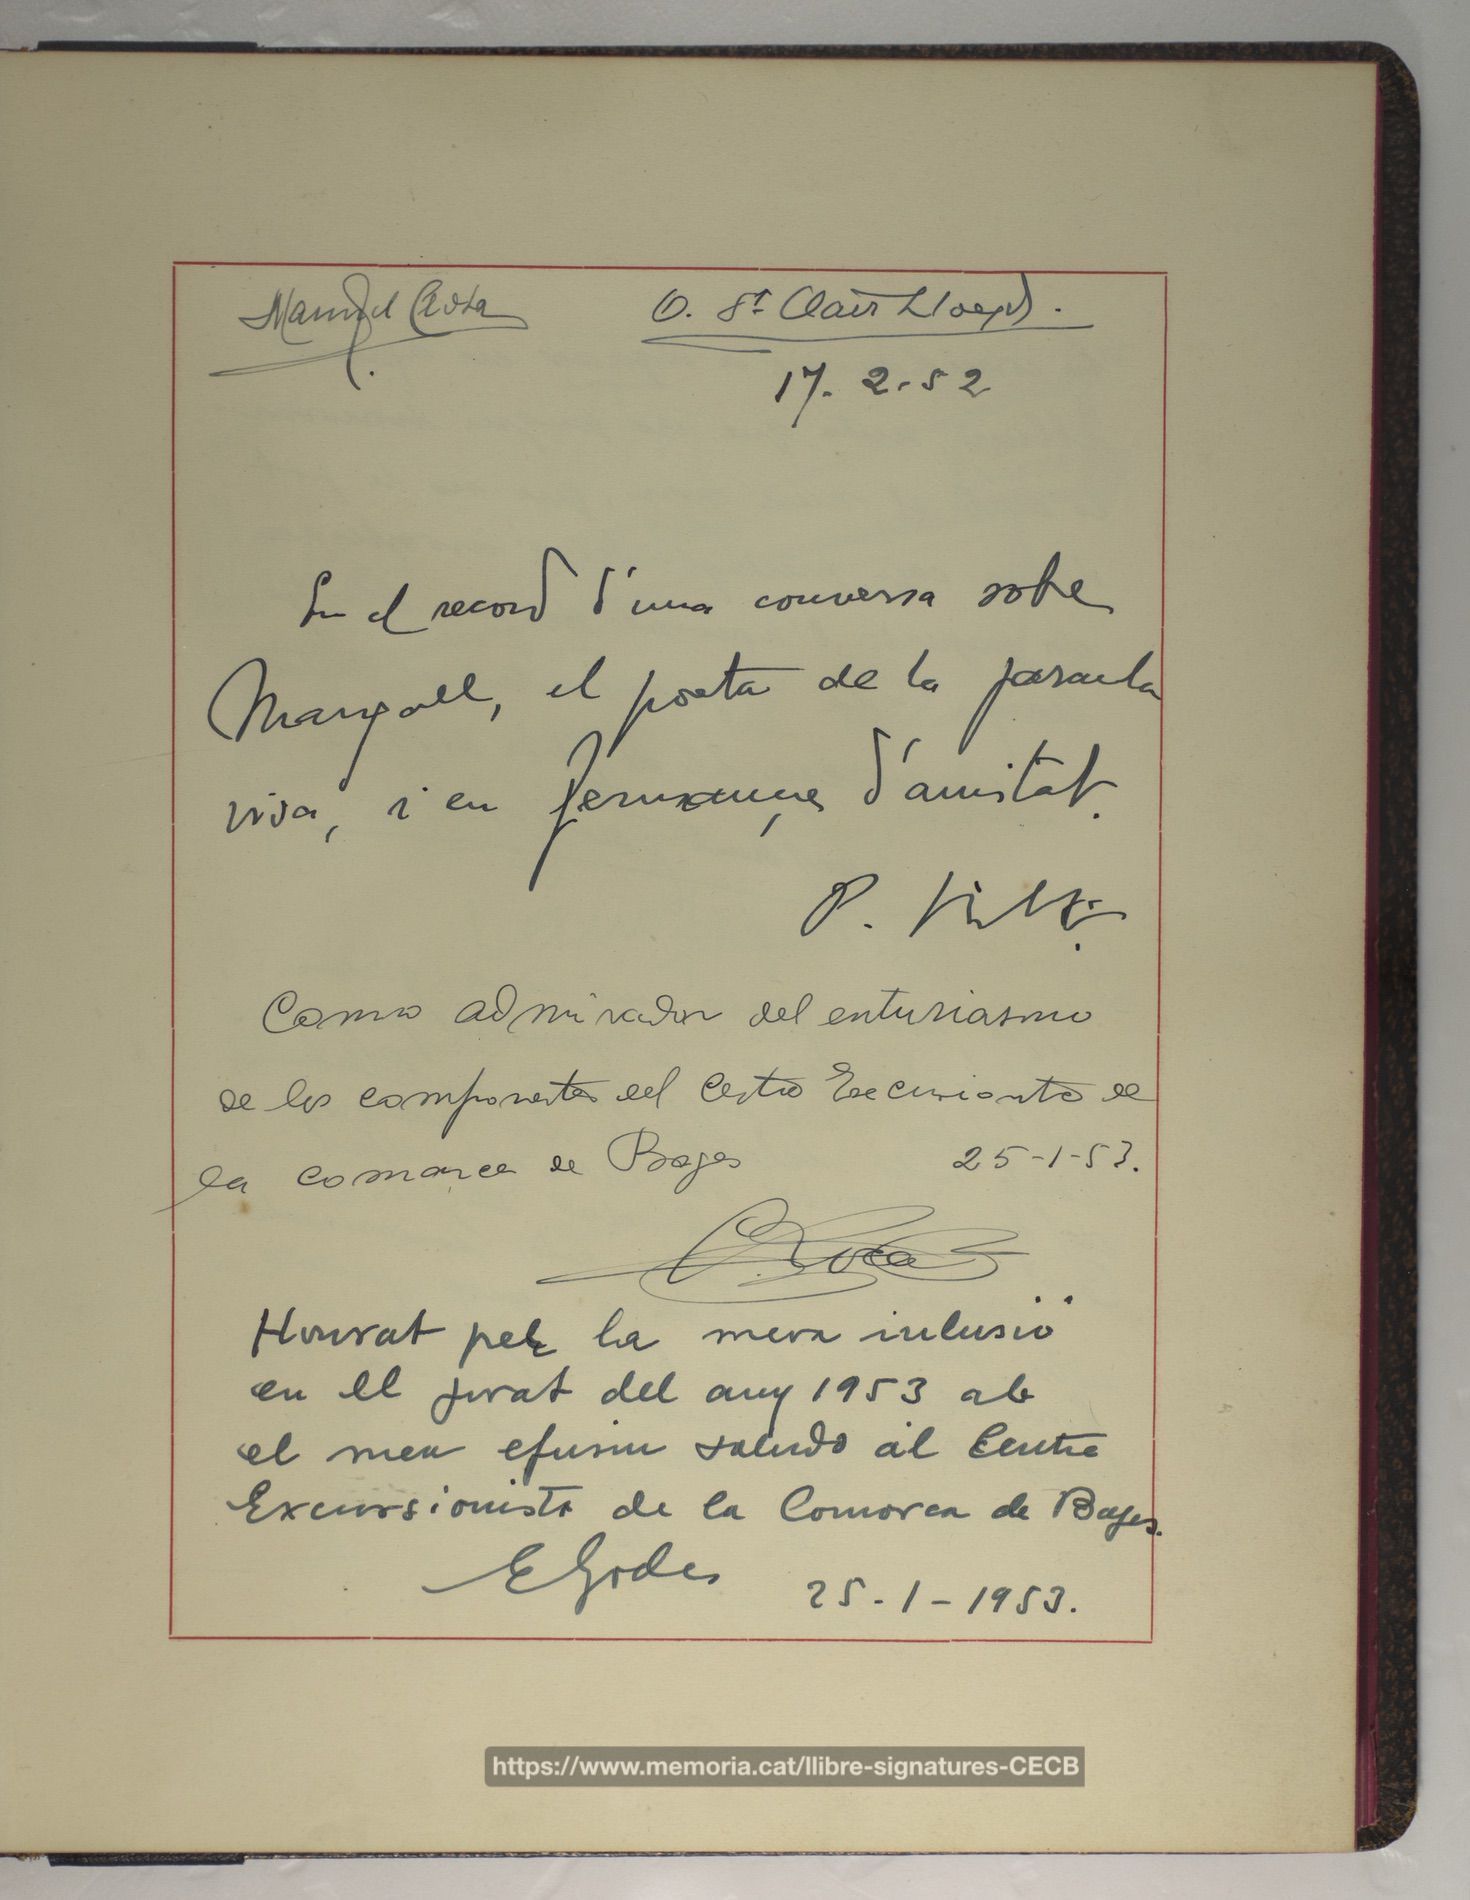 Manuel Costa
O. St Clair Lloyd.
17. 2. 52
En el record d'una conversa sobre
Maragall, el poeta de la paraula
viva, i en fermança d'amistat.
P.
Como admirador del entusiasmo
de los componentes del Centro Excursionista de
la comarca de Bages 25-1-53.
Honrat per la meva inclusió
en el jurat del any 1953 ab
el meu efusiu saludo al Centre
Excursionista de la Comarca de Bages.
E Godes 25-1-1953.
https://www.memoria.cat/llibre-signatures-CECB